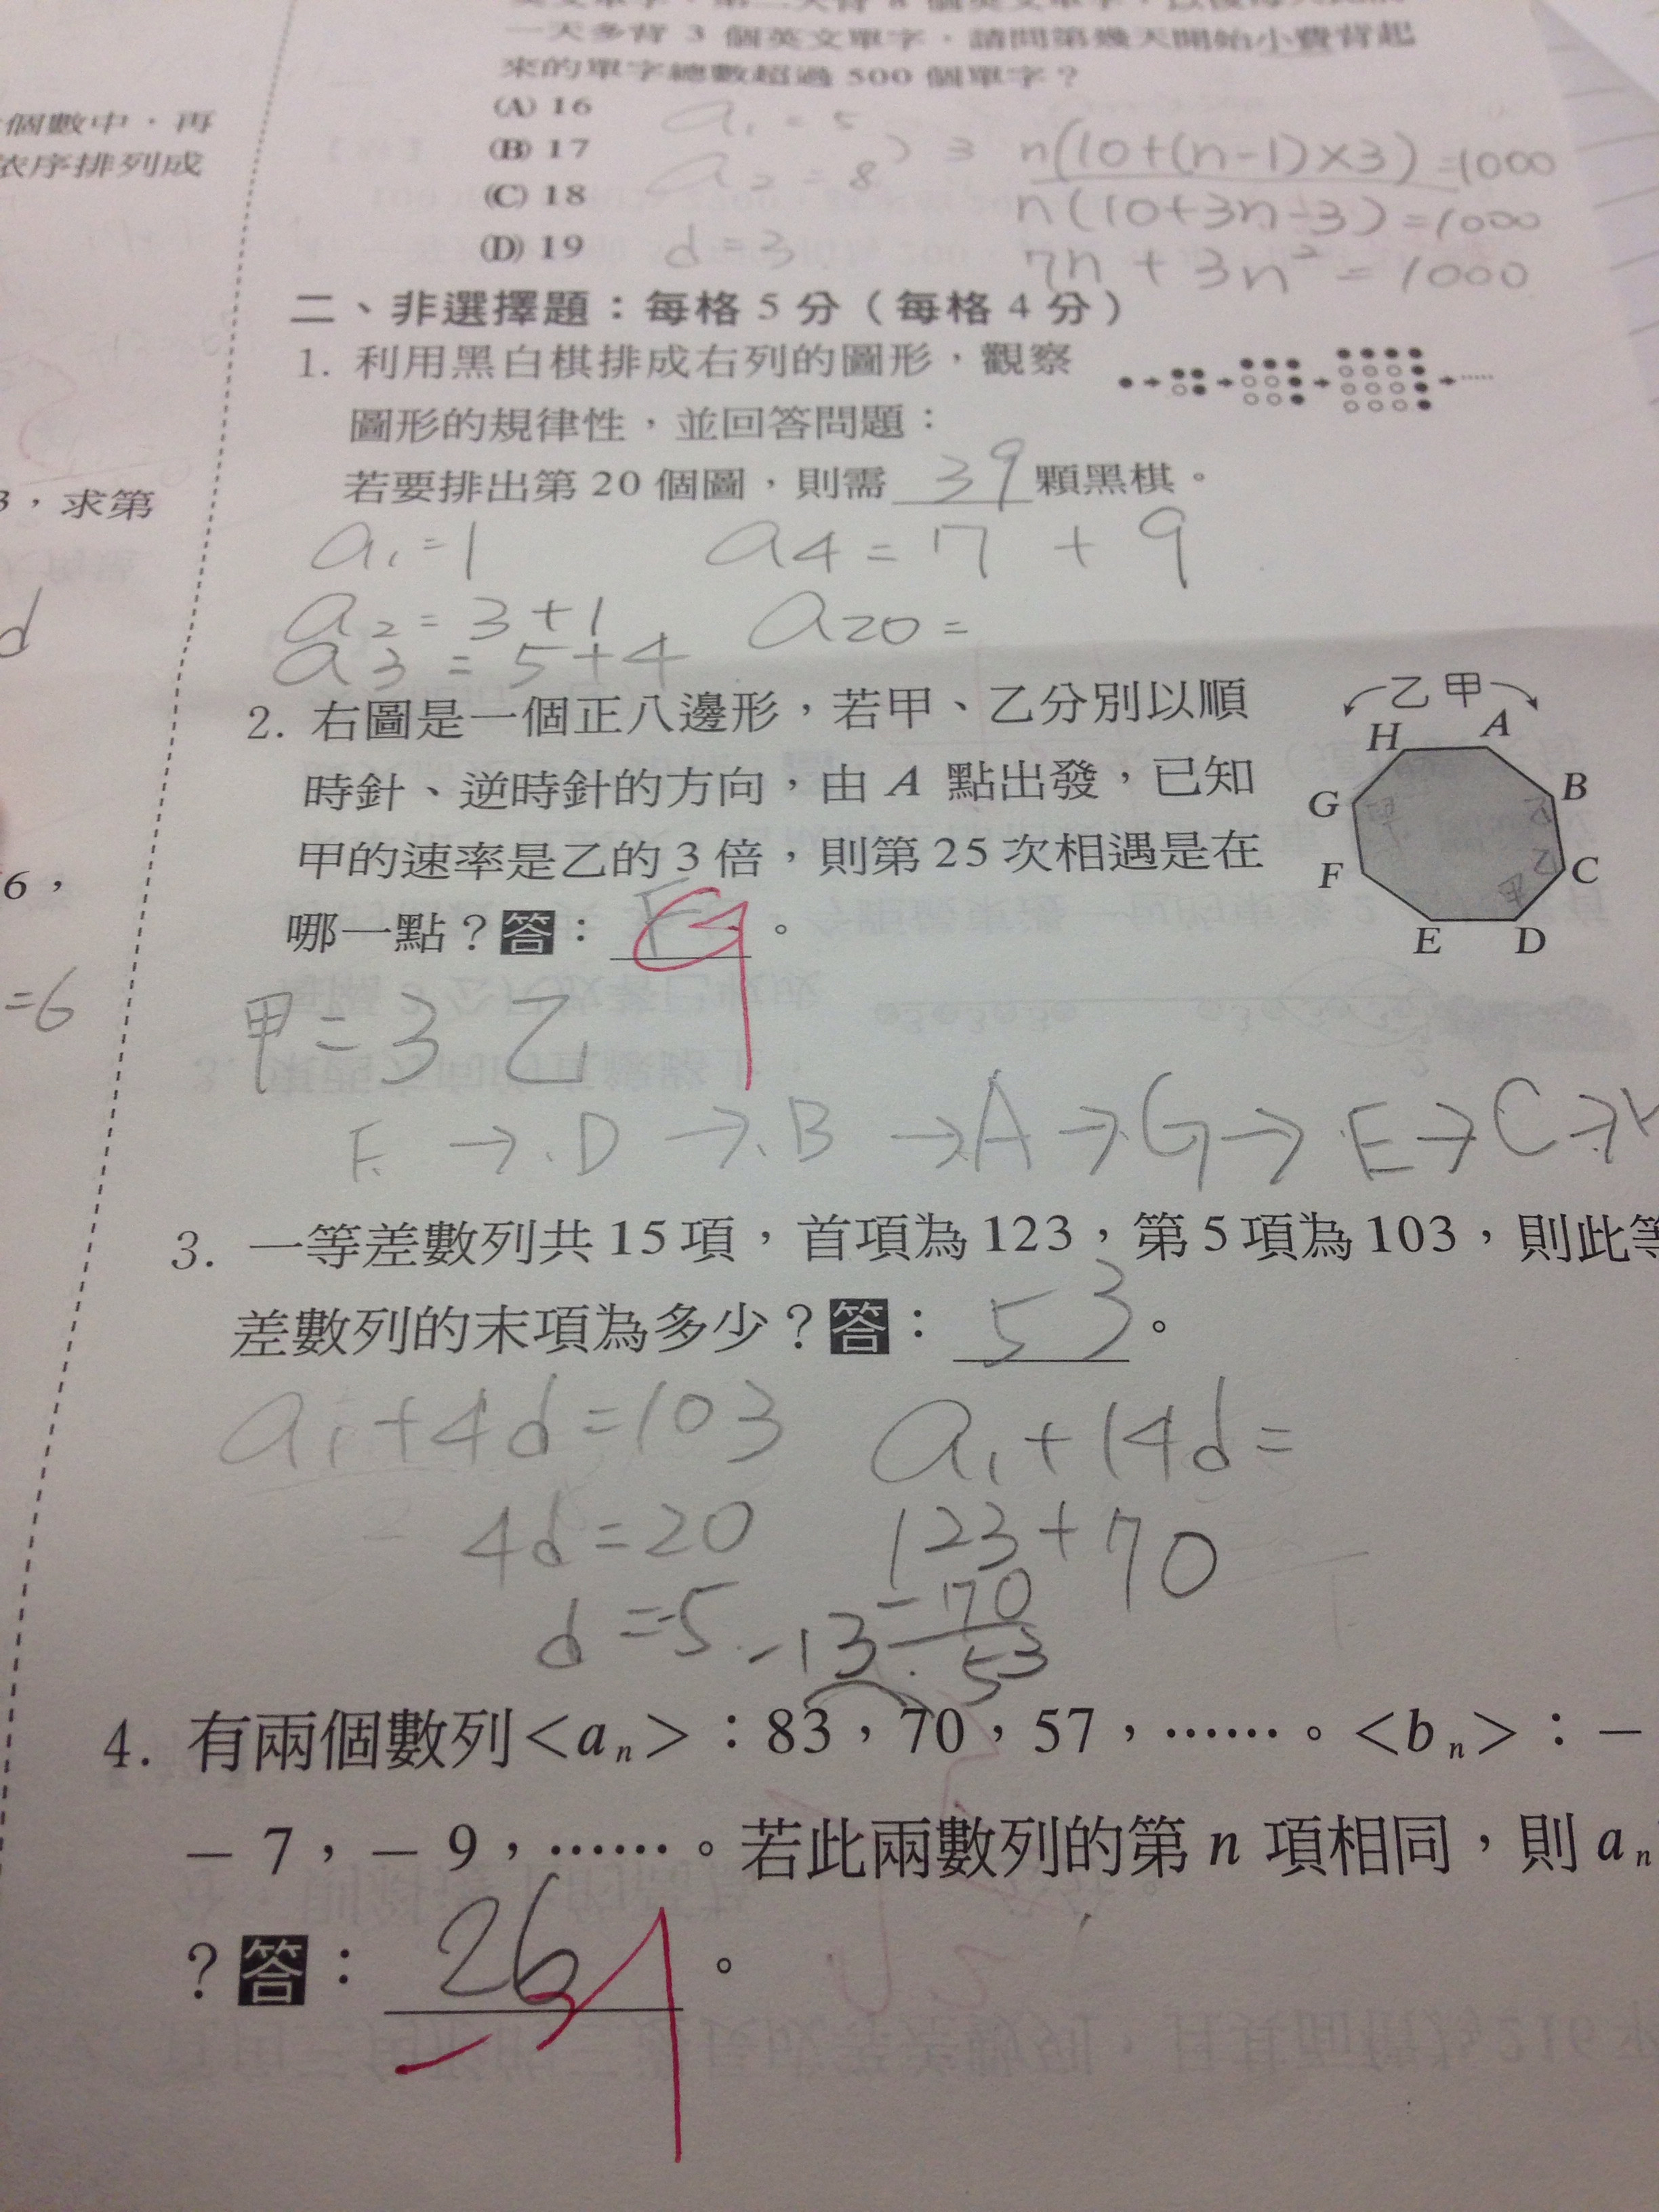 一天多背 3 個英文單字，請問第幾天開始小費背起
來的單字總數超過 500 個單字？
(A) 16
(B) 17
(C) 18
(D) 19
a₁=5
a₂=8
) 3
d=3
n(10+(n-1)×3)=1000
n(10+3n-3)=1000
7n+3n²=1000
個數中，再
依序排列成
3，求第
d
6，
=6
二、非選擇題：每格 5 分（每格 4 分）
1. 利用黑白棋排成右列的圖形，觀察
圖形的規律性，並回答問題：
若要排出第 20 個圖，則需 39 顆黑棋。
a₁=1
a₄=7+9
a₂=3+1
a₂₀=
a₃=5+4
2. 右圖是一個正八邊形，若甲、乙分別以順
時針、逆時針的方向，由 A 點出發，已知
甲的速率是乙的 3 倍，則第 25 次相遇是在
哪一點？答：。
乙 甲
H A
B
G
C
F
E D
甲=3乙
→D→B→A→G→E→C→
3. 一等差數列共 15 項，首項為 123，第 5 項為 103，則此等
差數列的末項為多少？答：53。
a₁+4d=103
a₁+14d=
4d=20
123+70
d=-5
-70
53
-13
4. 有兩個數列<aₙ>：83，70，57，……。<bₙ>：－
－7，－9，……。若此兩數列的第 n 項相同，則 aₙ
？答：26。